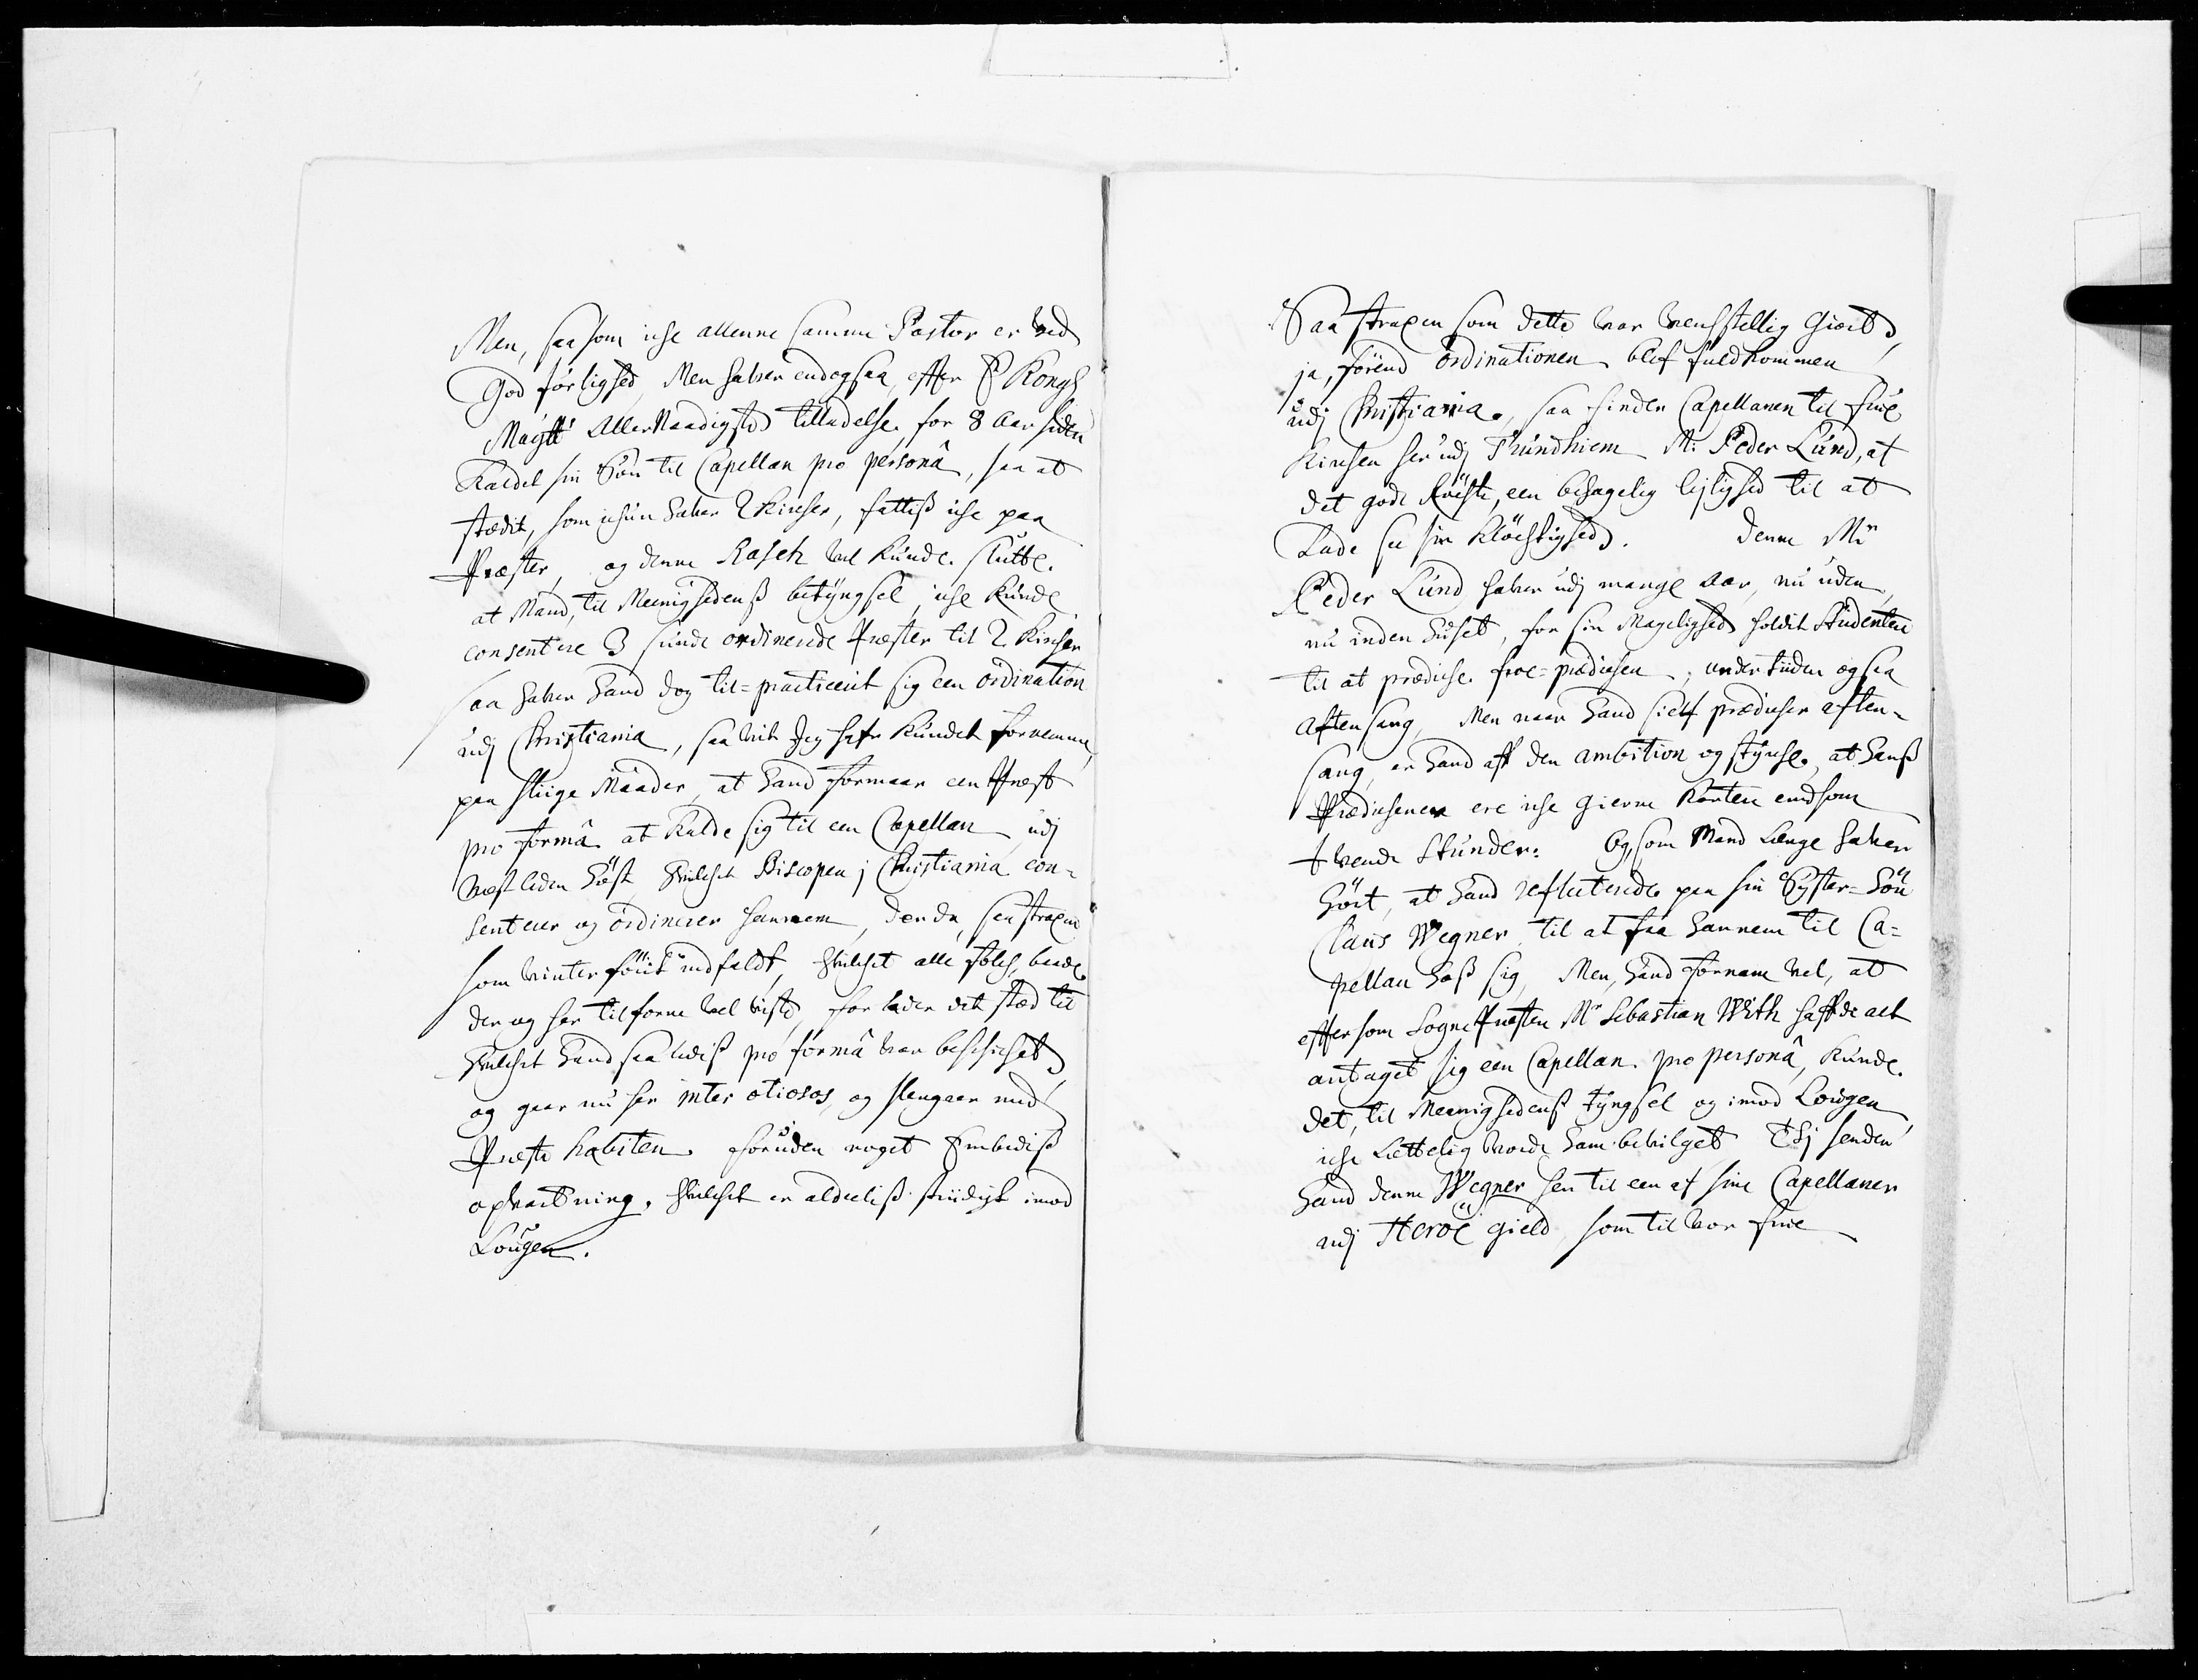 Men, saasom iche allenne samme Pastor er ved
God förlighed, Men haver endogsaa, efter E Kongl
Maytt Aller Naadigste tilladelse, for 8 aar siden
Kaldet sin Sön til Capellan pro personâ, saa at
stædit, som ichun haver 2 Kircher, fattiß iche paa
Præster, og denne Rasch vel kunde slutte,
at Mand, til Meenighedenß betyngsel, iche kunde
consentere 3 sunde ordinerede Præster til 2 Kircher
saa haver hand dog til=practiceirt sig een ordination
udj Christiania, saa vit Jeg hafr kundet fornemme,
paa sliige Maader, at hand formaar een Præst
pro formâ at kalde sig til een Capellan, udj
næst leden Höst, hvilchet Biscopen j Christiania con=
senterer og ordinerer hannem, der da, saa straxen
som vinterföret indfaldt, hvilchet alle folch, baade
der og her tilforne vel viste, forlader det stæd til
hvilchet hand saaledis pro formâ var beschichet,
og gaar nu her inter otiosos, og slengaar med
Præste habiten, foruden noget Embediß
opvartning, hvilchet er aldeeliß striidigt imod
Lougen.
Saa straxen som dette var verchstellig Giort,
ja, förend ordinationen blef fuldkommen
udj Christiania, saa finder Capellanen til frue
Kirchen her udj Trundhiem Mr. Peder Lund, at
det gode Röcste, een behagelig lejlighed til at
Lade see sin Klöchtighed. Denne Mr
Peder Lund haver udj mange Aar, nu uden,
nu inden huset, for sin Magelighed holdit Studenter
til at prædiche froe=prædichen, undertiiden ogsaa
Aftensang, Men naar hand sielf prædicher aften=
sang, er hand aff den ambition og styrche, at hanß
Prædichener ere iche gierne korter end som
tvende Stunder. Og, som Mand længe haver
hört, at hand reflecterede paa sin Syster=Sön
Claus Wegner, til at faa hannem til Ca=
pellan hoß sig, Men, hand fornam vel, at
effter som SognePræsten Mr Sebastian With haffde alt
antaget sig een Capellan pro personâ, kunde
det, til Meenighedenß tyngsel og imod Lougen
iche lettelig vorde ham bevilget, Thj sender
hand denne Wegner hen til een af sine Capellaner
udj Heroe gield, som til vor frue